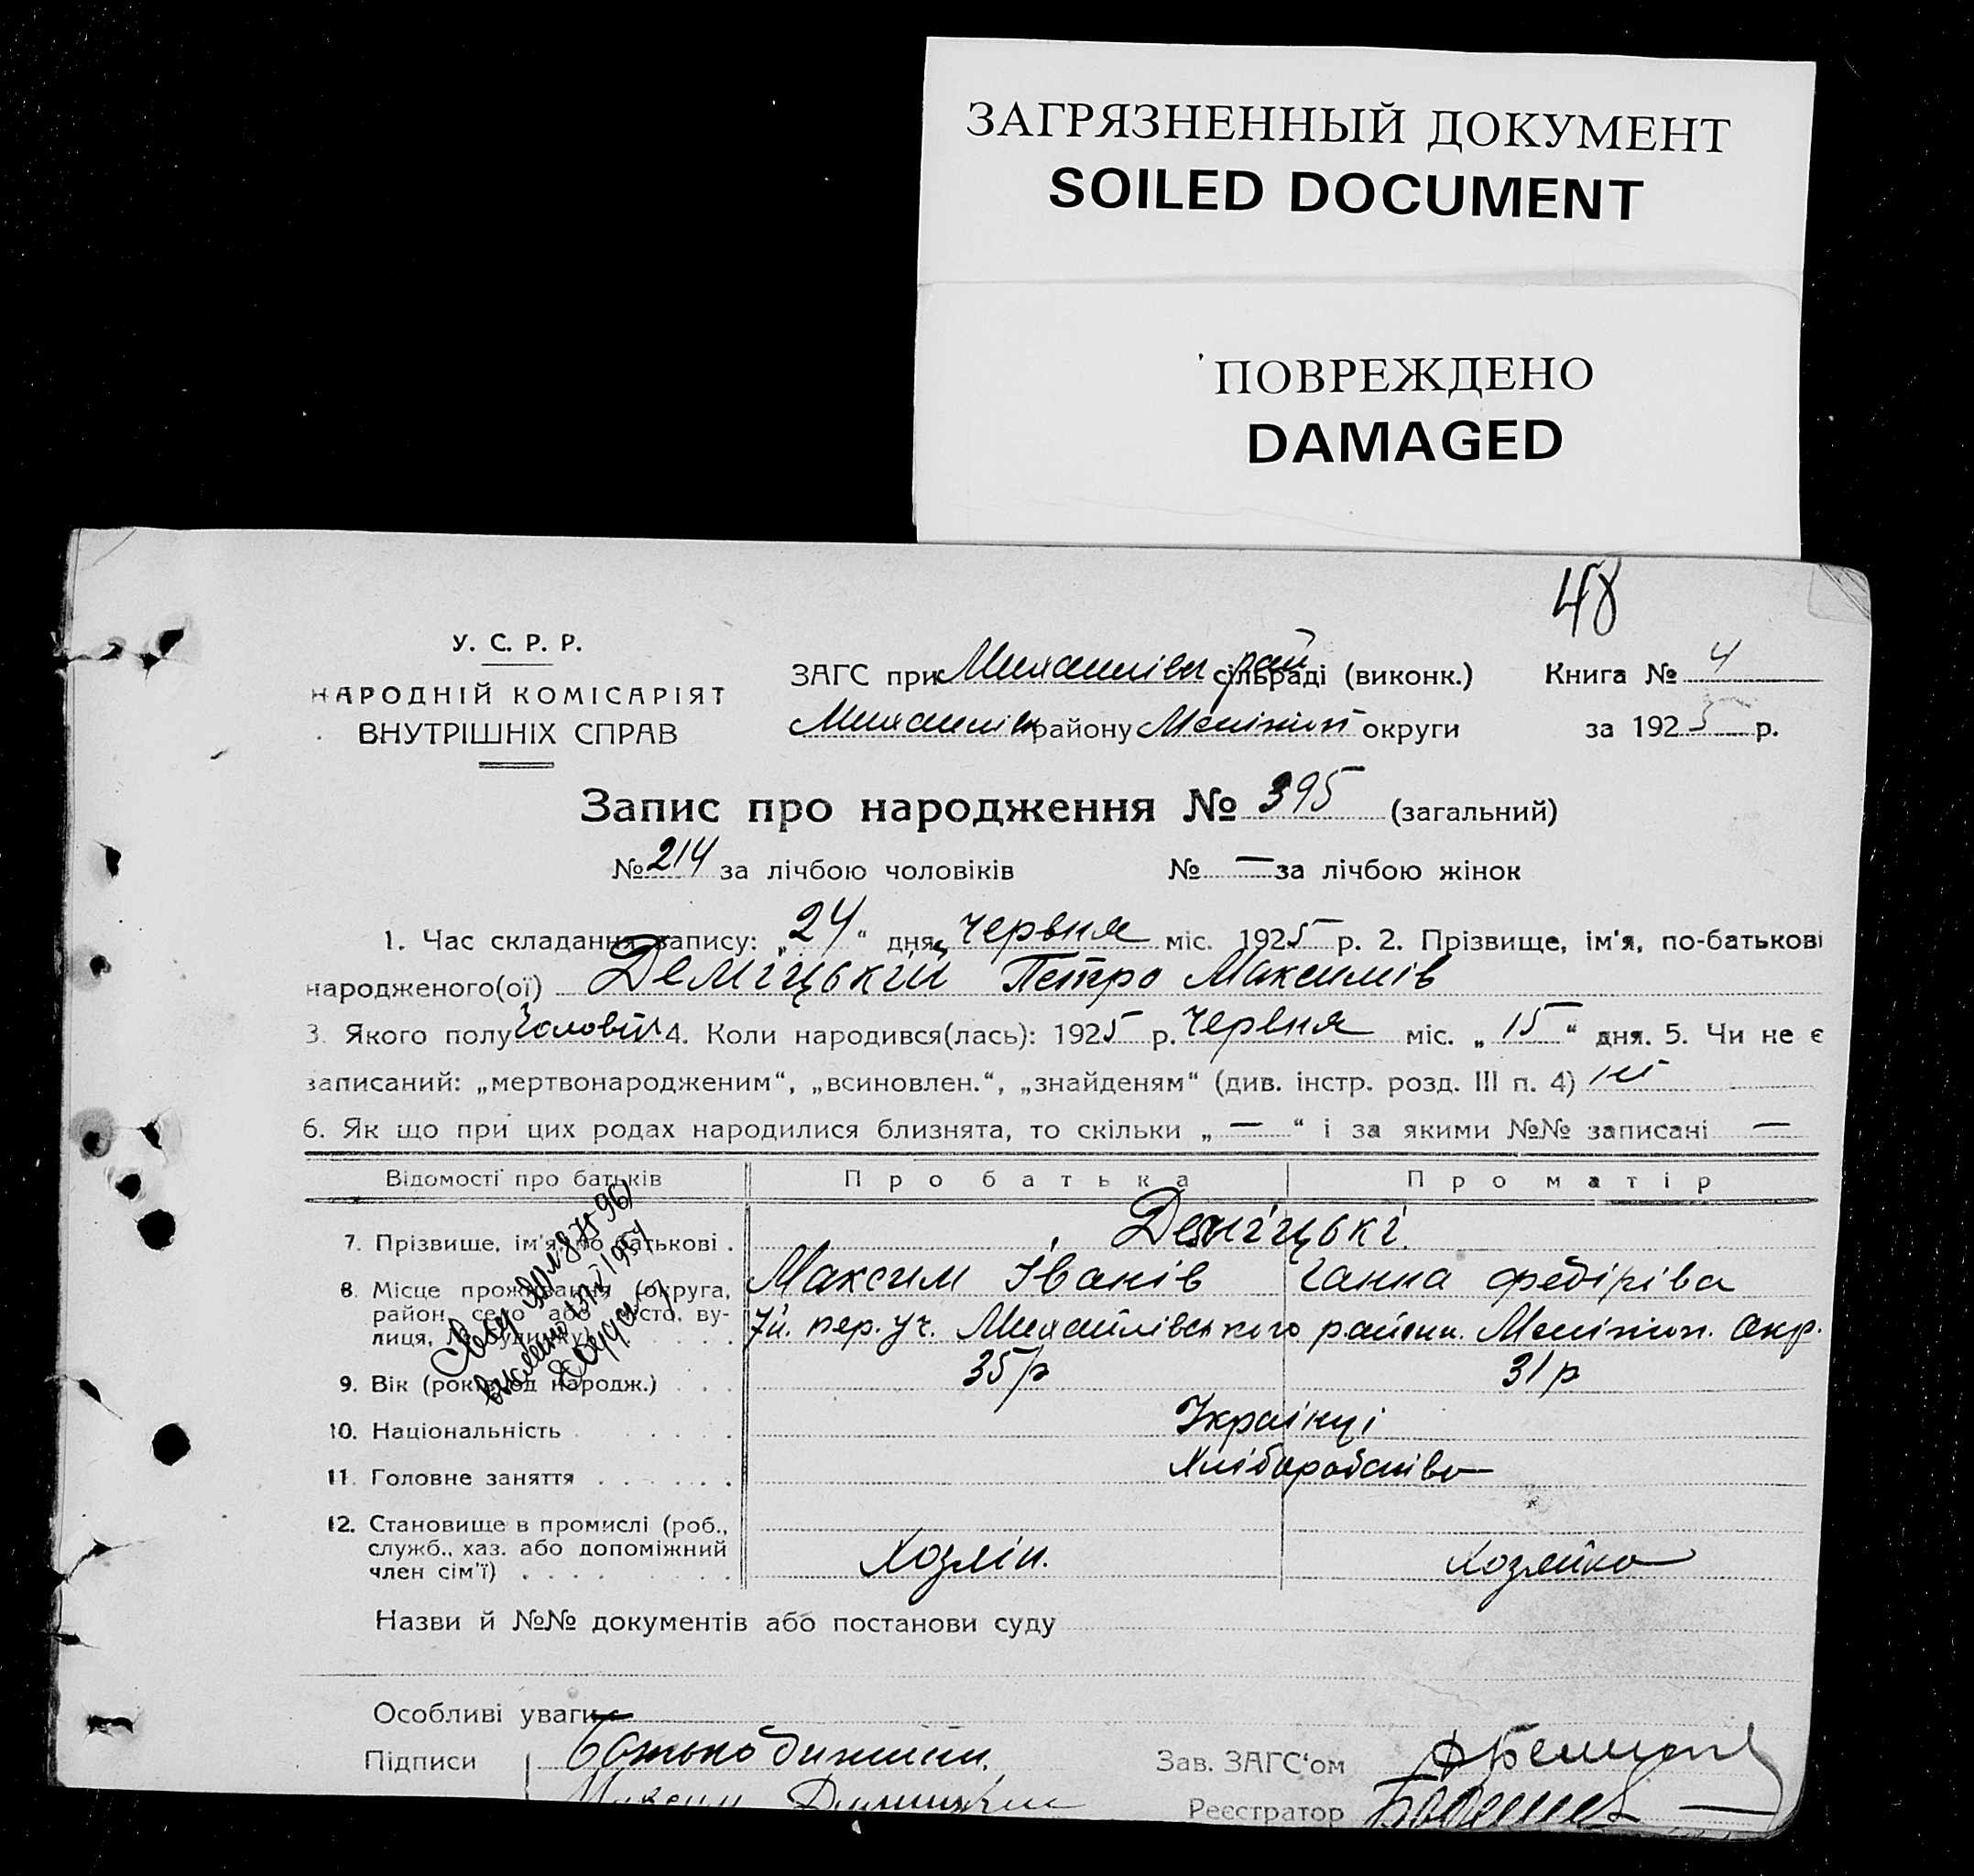 ЗАГРЯЗНЕННЫЙ ДОКУМЕНТ
SOILED DOCUMENT
ПОВРЕЖДЕНО
DAMAGED
48
У. С. Р. Р.
НАРОДНІЙ КОМІСАРІЯТ
ВНУТРІШНІХ СПРАВ
ЗАГС при Михайлівск рай сільраді (виконк.) Книга № 4
Михайлівск району Мелітоп округи за 1925 р.
Запис про народження № 395 (загальний)
№ 214 за лічбою чоловіків № — за лічбою жінок
1. Час складання запису: „24“ дня червня міс. 1925 р. 2. Прізвище, ім'я, по-батькові
народженого(ої) Деміцький Петро Максимів
3. Якого полу Чоловіч 4. Коли народився(лась): 1925 р. Червня міс. „15“ дня. 5. Чи не є
записаний: „мертвонародженим“, „всиновлен.“, „знайденям“ (див. інстр. розд. III п. 4) ні
6. Як що при цих родах народилися близнята, то скільки „—“ і за якими №№ записані —
Відомості про батьків Про батька Про матір
7. Прізвище, ім'я, по батькові . Деміцькі.
Максим Іванів Ганна Федірівa
8. Місце проживання (округа, район, село або місто, вулиця, № будинку) 7й. пер. уч. Михайлівського района. Мелітоп. Окр.
9. Вік (років од народж.) . . . 35 р 31 р
10. Національність . . . . . . Українці
11. Головне заняття . . . . . . Хліборобство
12. Становище в промислі (роб.,
служб., хаз. або допоміжний
член сім'ї) . . . . Хозяін. Хозяйка
Назви й №№ документів або постанови суду
Особливі уваги
Підписи Батько дитини.
Зав. ЗАГС'ом
Максим
Реєстратор